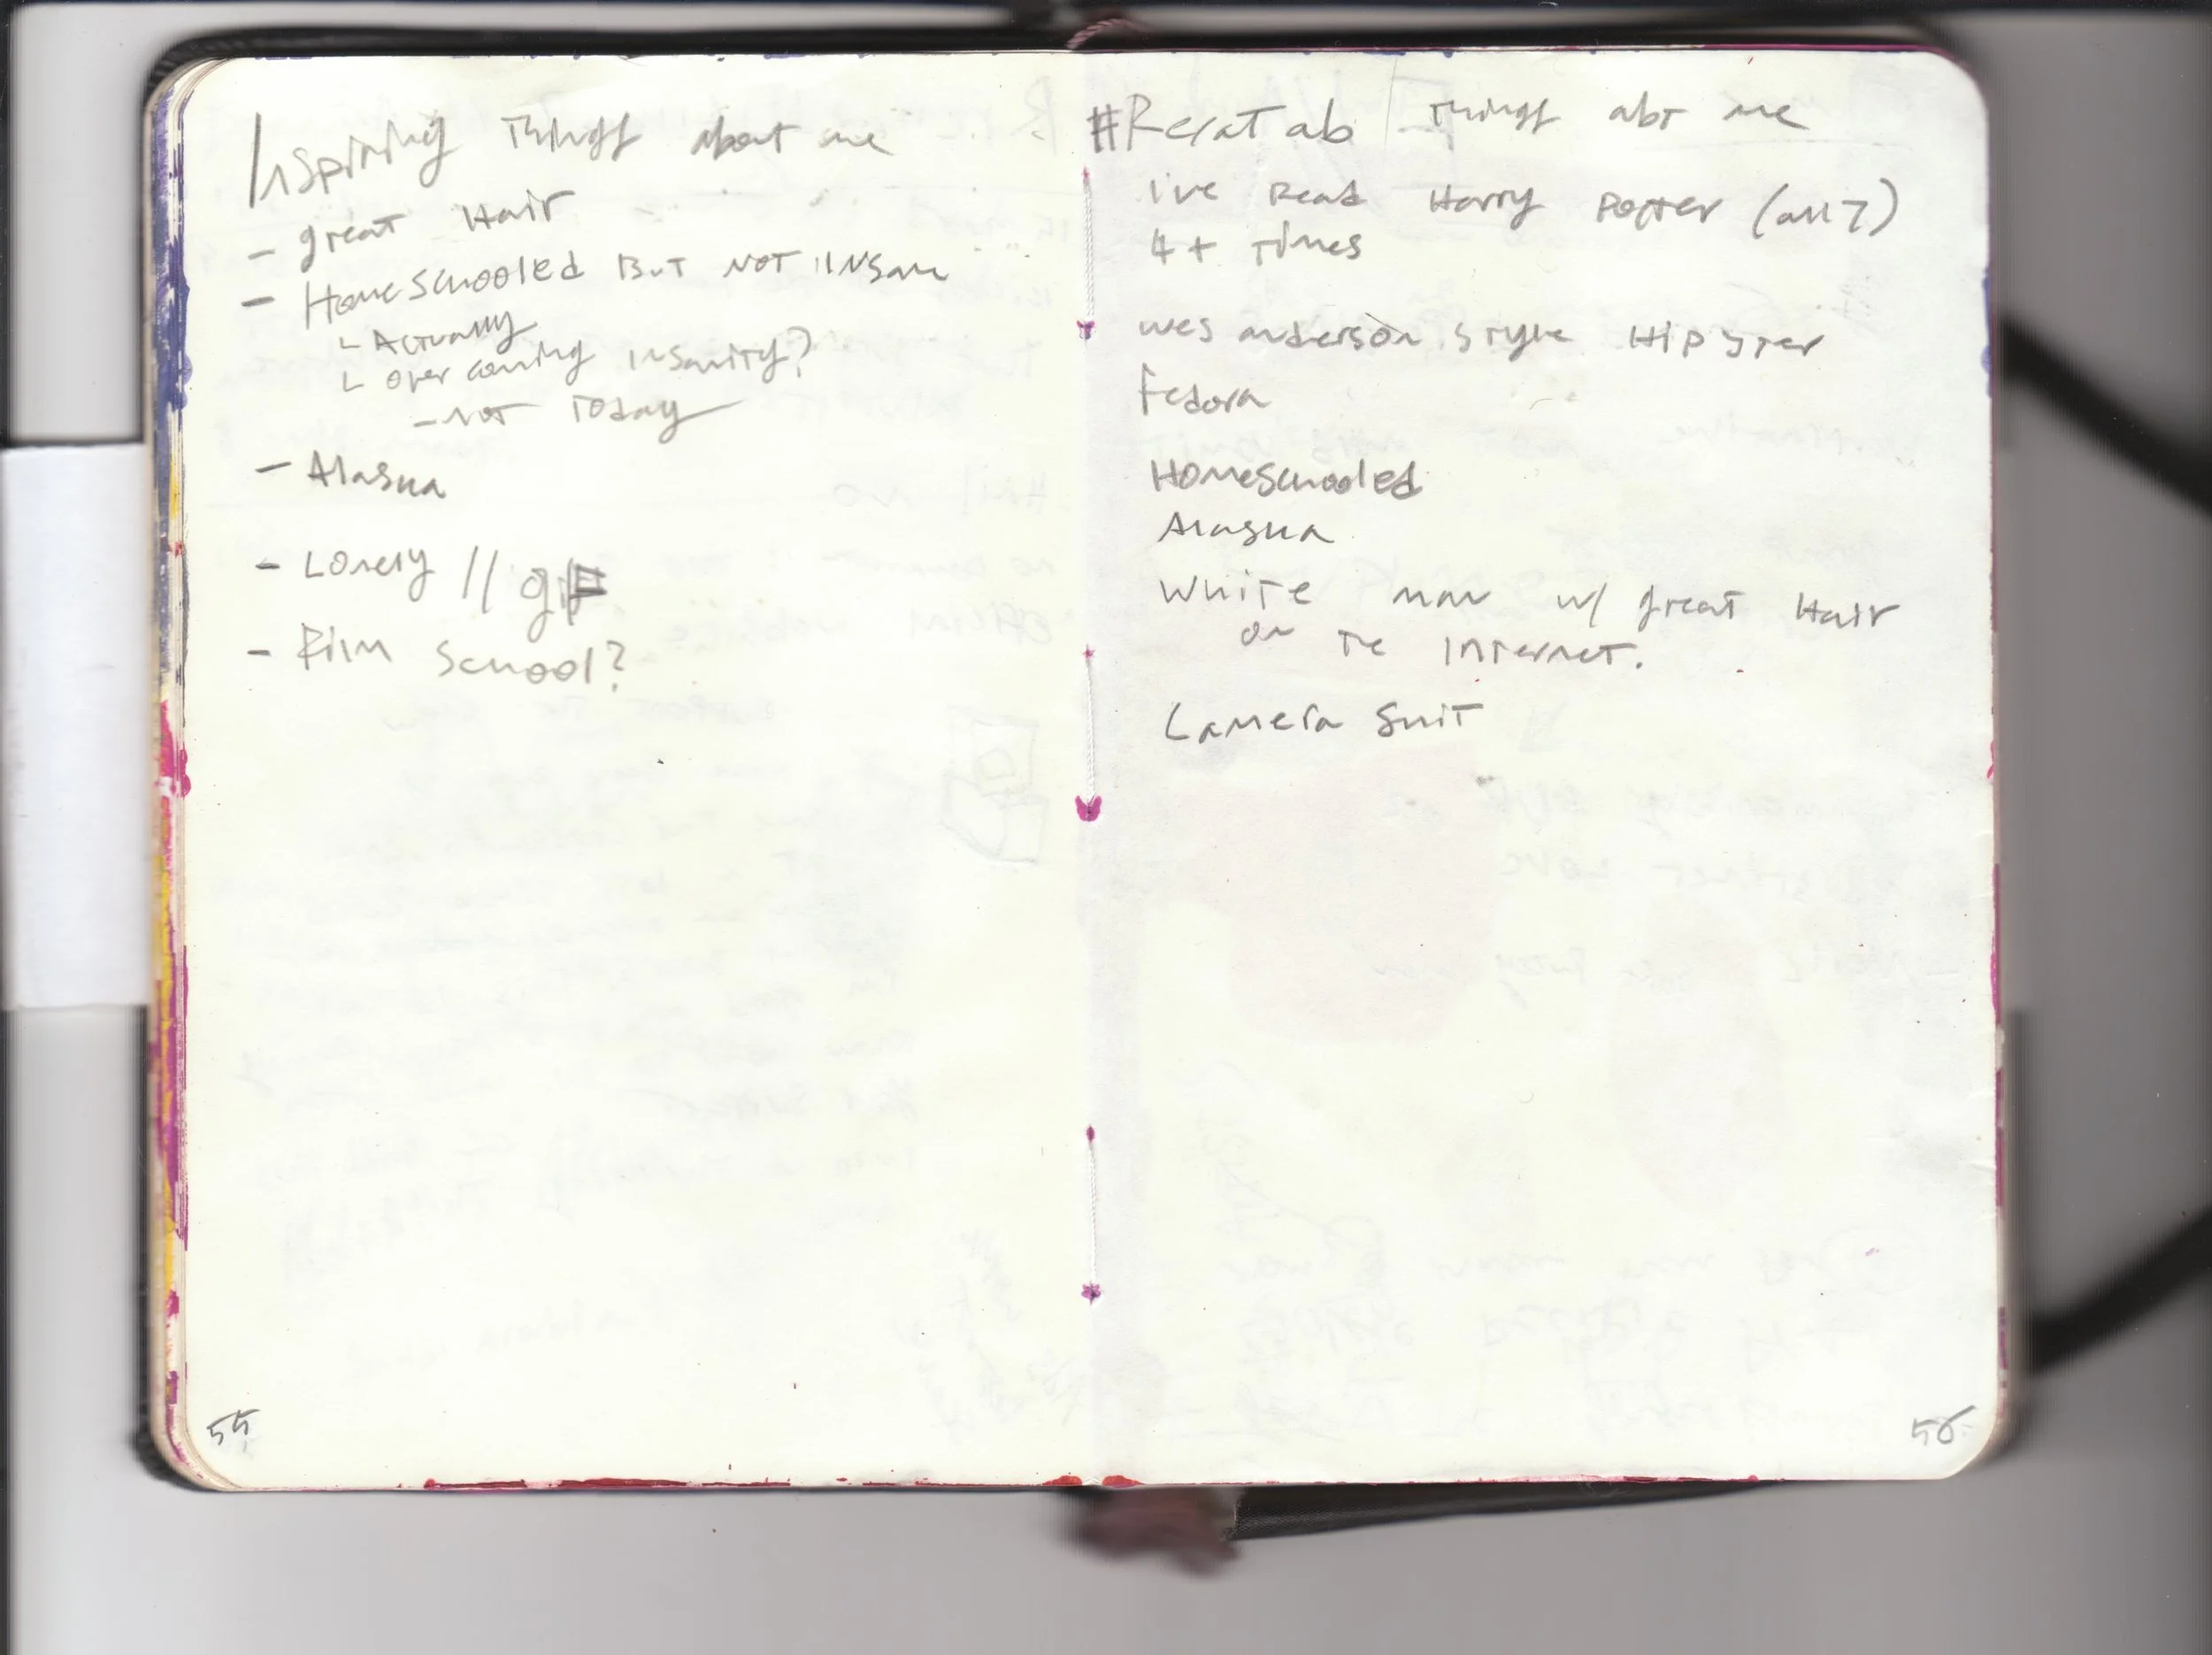 Inspiring Things about me
- great Hair
- Homeschooled But NOT INSane
└ Actually
└ overcoming insanity?
- not Today
- Alaska
- Lonely //
- Film School?
55
#Relatab Things abt me
I've Read Harry Potter (all 7)
4+ Times
wes anderson style Hipster
Fedora
HOMESchooled
Alaska
White man w/ great Hair
on Te Internet.
Camera Suit
56